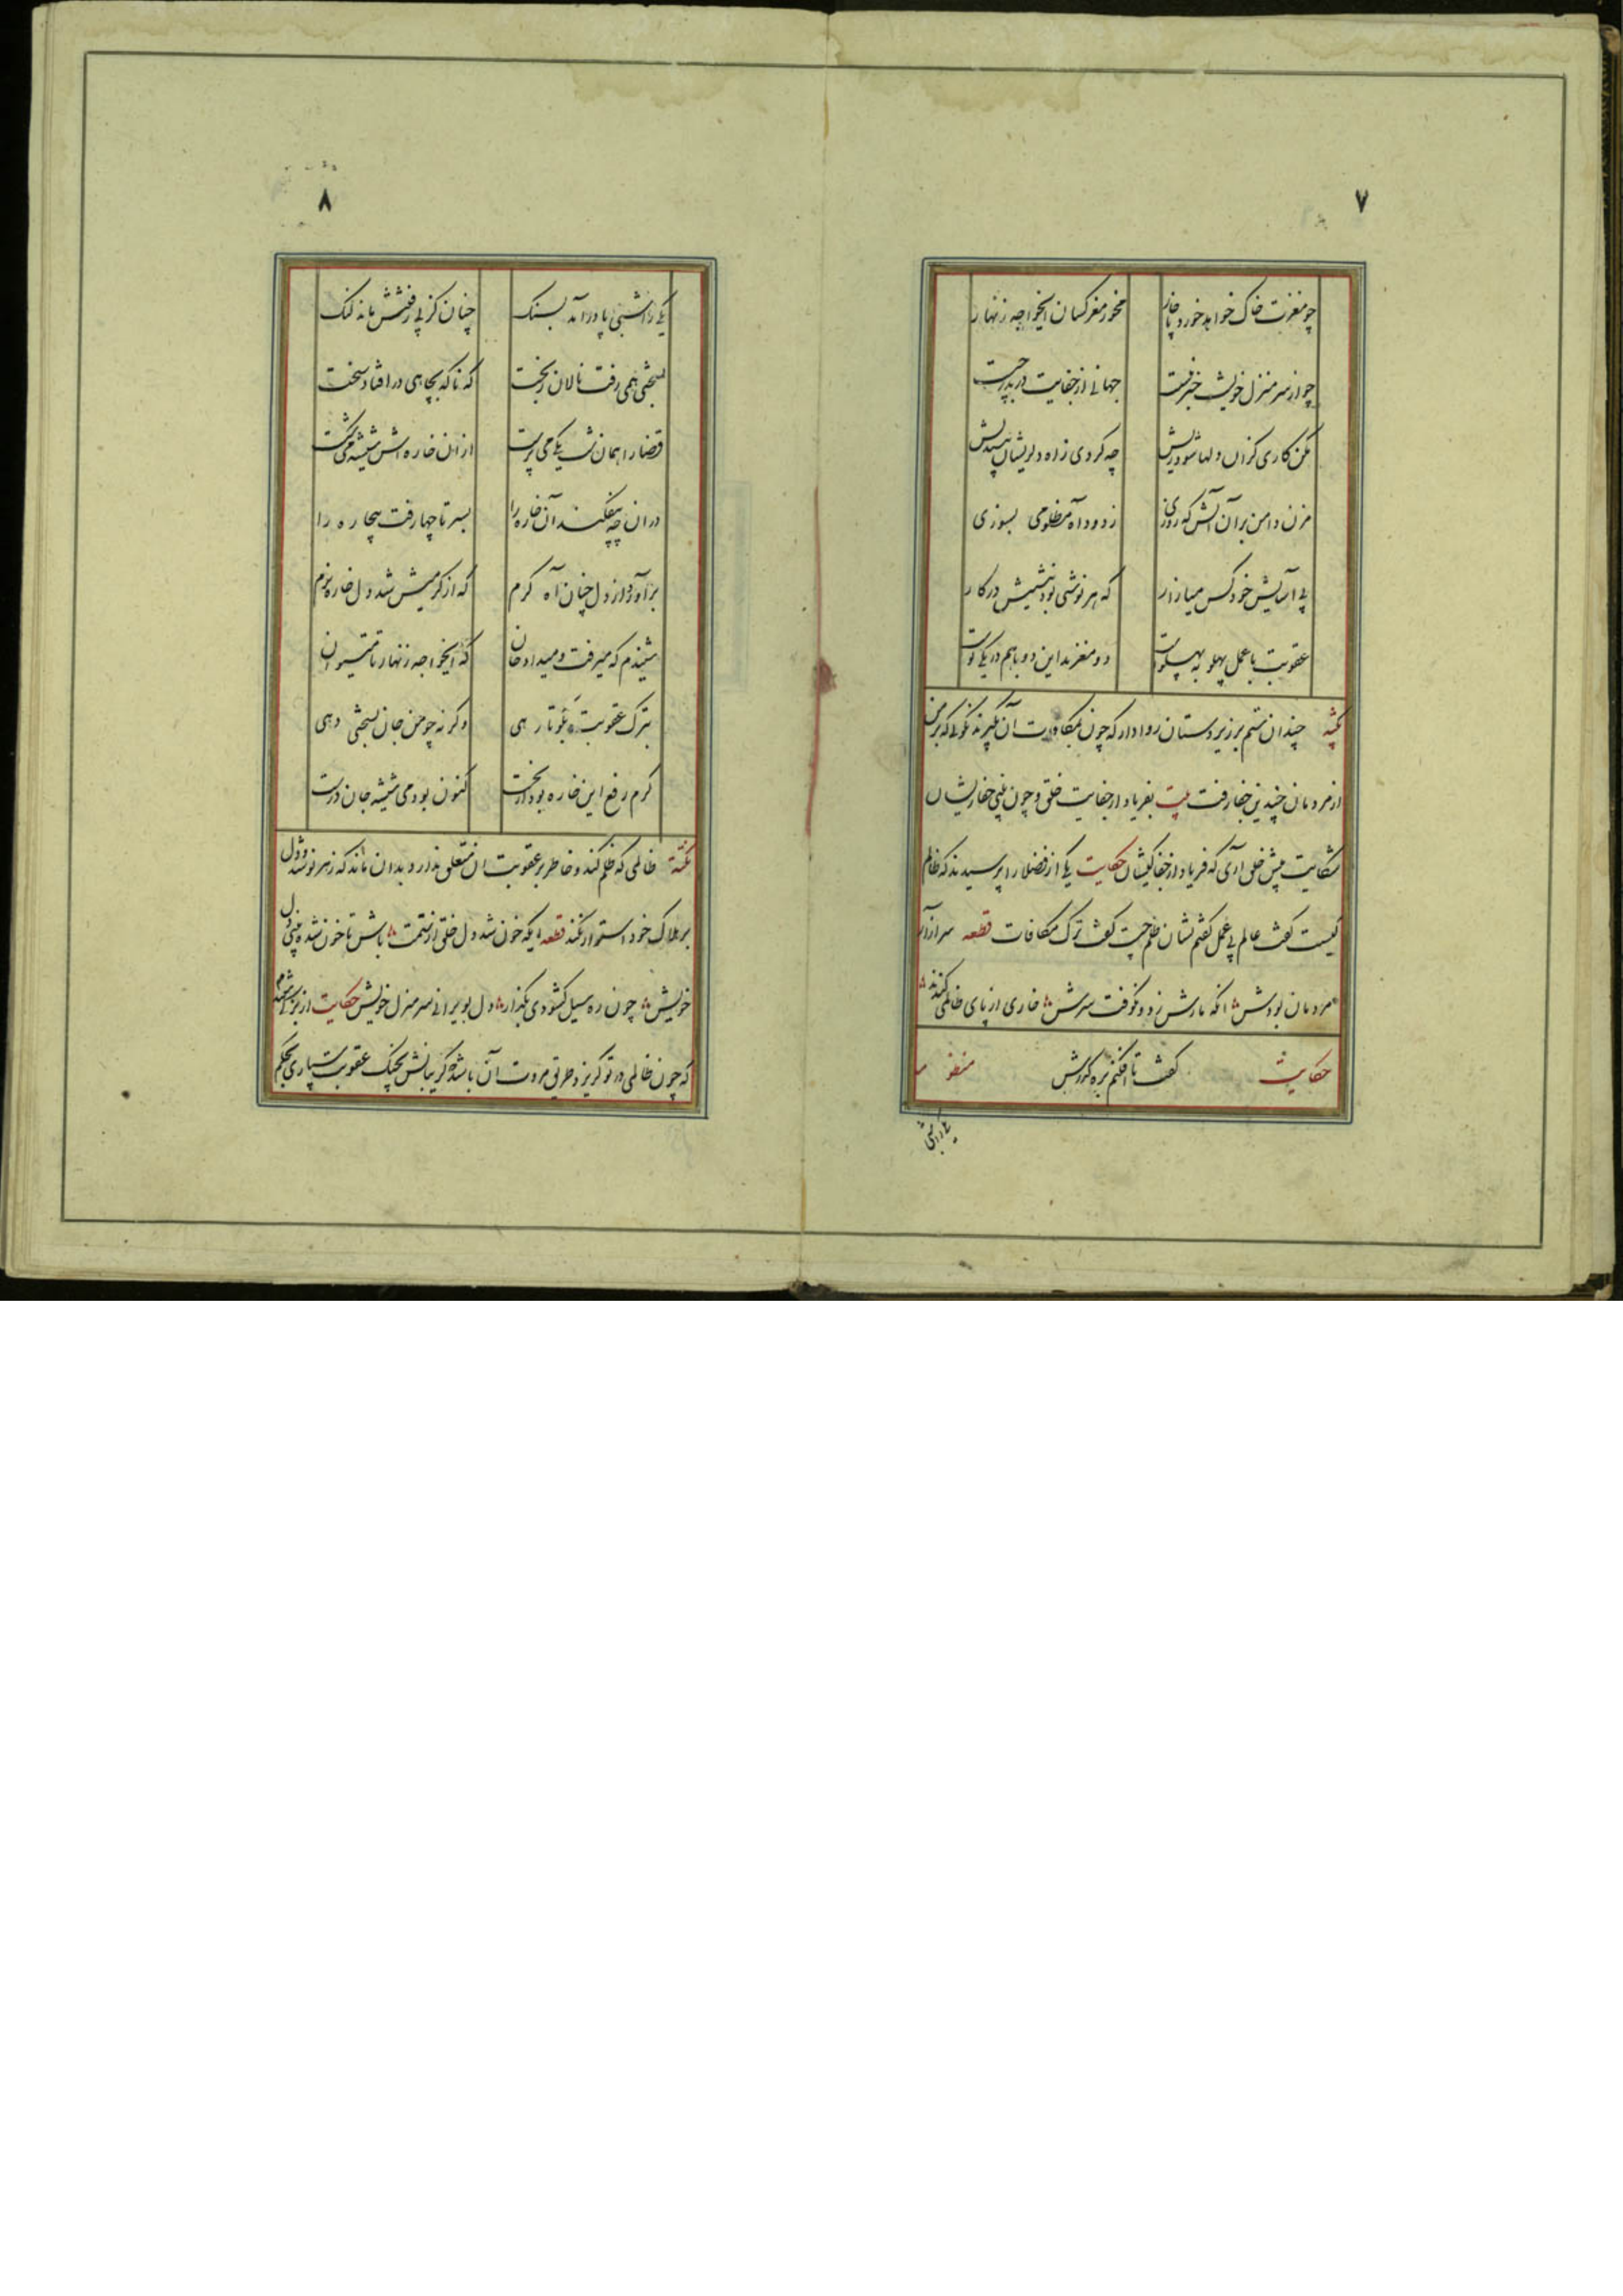 ۷
چو مغزت خاک خواهد خورد ناچار مخور مغز کسان ایخواجه زنهار
چو از سر منزل خویشت خبر نیست جهانی از جفایت دربدر چیست
مکن کاری کزان دلها شود ریش چه کردی زاه دلریشان بیندیش
مزن دامن بران آتش که روزی ز دود آه مظلومی بسوزی
پی آسایش خود کس میازار که هر نوشی بود نیشیش در کار
عقوبت با عمل پهلو به پهلوست دو مغزند این دو با هم در یکی پوست
نکته چندان ستم بر زیردستان روا دار که چون بمکافات آن گیرند نگوئی که بر من
از مردمان چندین جفا رفت بیت بفریاد از جفایت خلق و چون بینی جفا زیشان
شکایت پیش خلق اری که فریاد از جفا کیشان حکایت یکی از فضلا را پرسیدند که ظالم
کیست گفت عالم بی عمل گفتم نشان ظلم چیست گفت ترک مکافات قطعه سر ازار
مردمان بودش انکه مارش زد و نکوفت سرش خاری از پای ظالمی کندند
حکایت گفت تا افکنم بره گذرش منظومه
یکی را شبی
۸
یکی را شبی پا درآمد بسنک چنان کز پی رفتنش ماند لنک
بسختی همی رفت نالان ز بخت که ناگه بچاهی در افتاد سخت
قضا را همان شب یکی می پرست ازان خاره اش شیشه می شکست
دران چه بیفکند آن خاره را بسر تا چها رفت بیچاره را
برآورد از دل چنان آه گرم که از گرمیش شد دل خاره نرم
شنیدم که میرفت و میداد جان که ایخواجه زنهار تا میتوان
بترک عقوبت بگو تا رهی وگرنه چو من جان بسختی دهی
گرم رفع این خاره بود از نخست کنون بودمی شیشه جان درست
نکته ظالمی که ظلم کند و خاطر بر عقوبت ان متعلق ندارد بدان ماند که زهر نوشد و دل
بر هلاک خود استوار نکند قطعه ایکه خون شد دل خلق از ستمت باش تا خون شده بینی دل
خویش چون ره سیل گشودی بگذار دل بویرانی سر منزل خویش حکایت از بزرگی شنیدم
که چون ظالمی در تو گریزد طریق مروت آن باشد که گریبانش بچنگ عقوبت سپاری بحکم